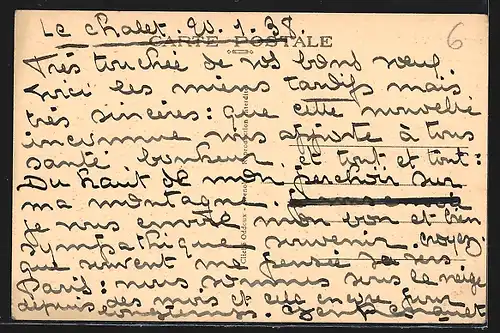 Le chalet. 20.1.38.
CARTE POSTALE
6
Très touchée de vos bons vœux
voici les miens tardifs mais
très sincères : que cette nouvelle
inconnue vous apporte à tous
santé bonheur. et tout et tout :
Du haut de mon perchoir sur
ma montagne.
je vous envoie mon bon et bien
sympathique souvenir. croyez
que souvent ma pensée va vers
Paris : nous sommes sous la neige
depuis des mois et elle encore